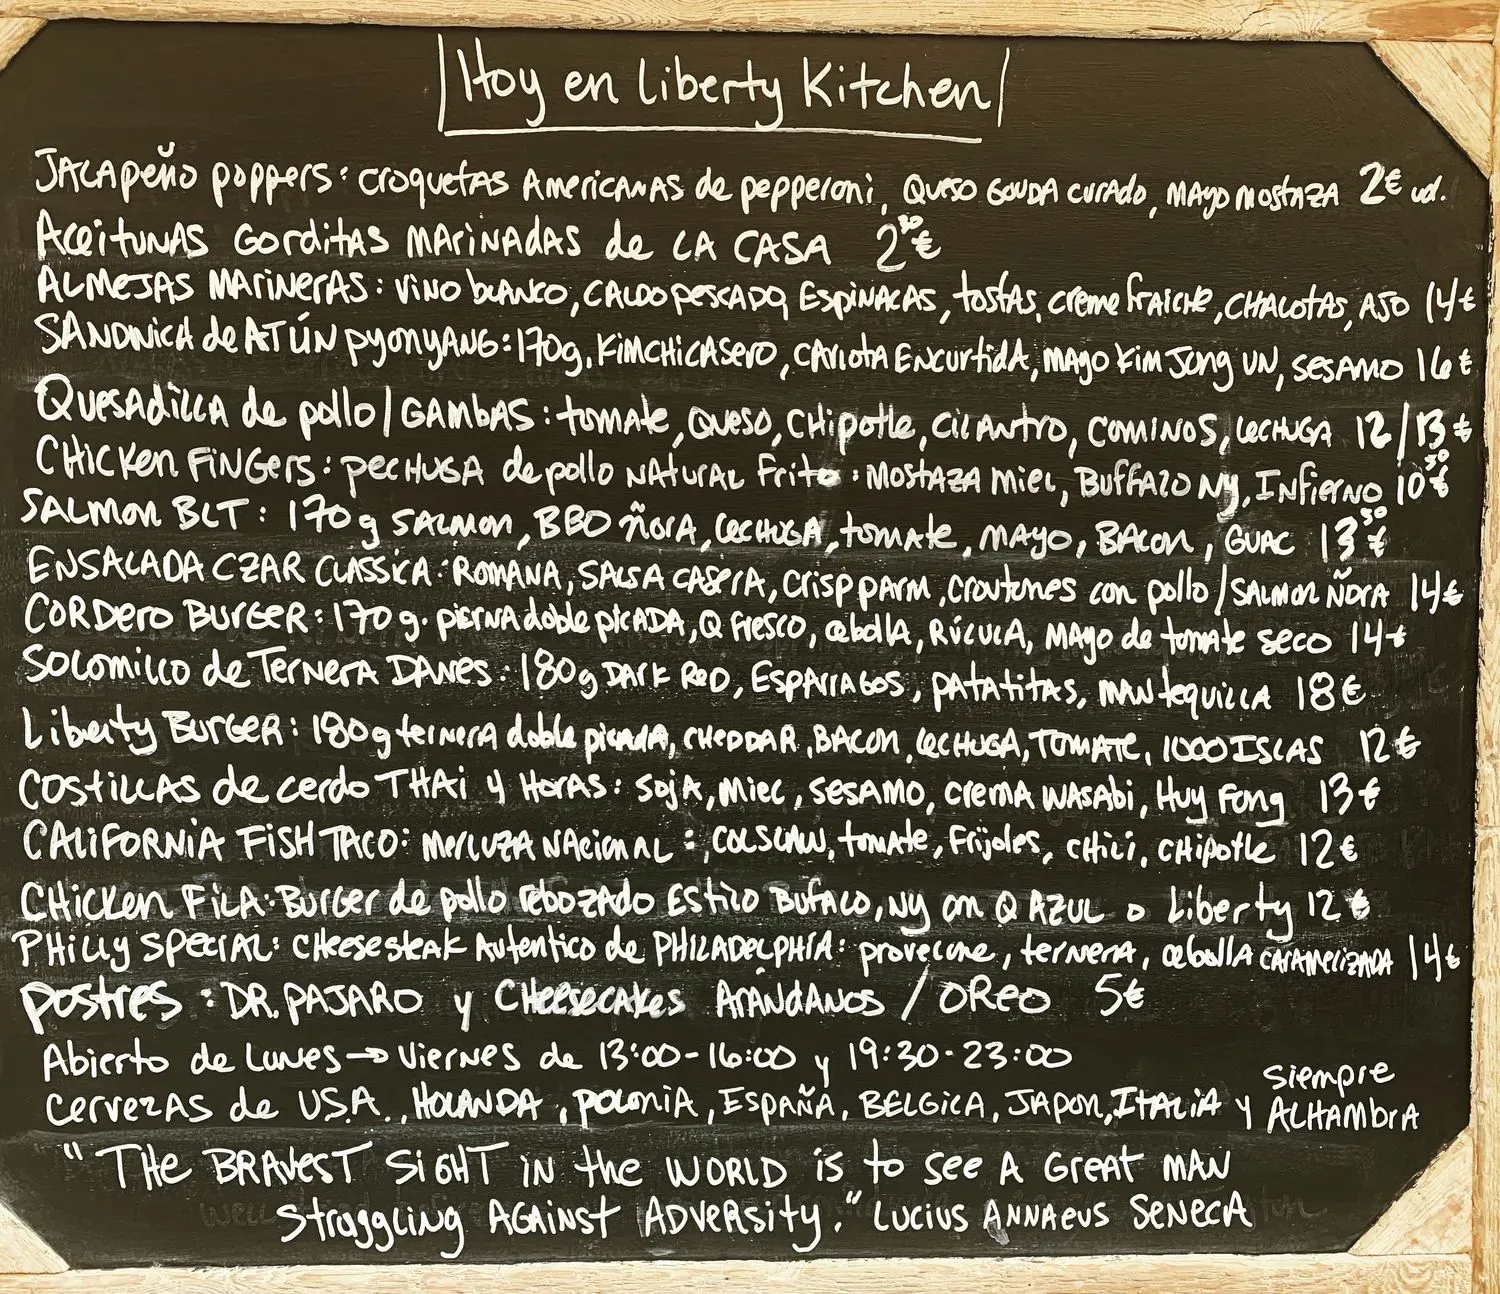 Hoy en Liberty Kitchen
JALAPEÑO POPPERS: CROQUETAS AMERICANAS de pepperoni, QUESO GOUDA CURADO, MAYO MOSTAZA 2€ ud.
Aceitunas Gorditas MARINADAS de LA CASA 2'50€
ALMEJAS MARINERAS: VINO BLANCO, CALDO PESCADO, ESPINACAS, tostas, creme fraiche, CHALOTAS, AJO 14€
SANDWICH de ATÚN PYONYANG: 170g, KIMCHI CASERO, CARLOTA ENCURTIDA, MAYO KIM JONG UN, SESAMO 16€
QUESADILLA de pollo / GAMBAS: tomate, QUESO, CHIPOTLE, CILANTRO, COMINOS, LECHUGA 12/13€
CHICKEN FINGERS: PECHUGA de pollo NATURAL Frito: MOSTAZA MIEL, BUFFALO NY, INFIERNO 10'50€
SALMON BLT: 170g SALMON, BBQ ÑORA, LECHUGA, tomate, MAYO, BACON, GUAC 13'50€
ENSALADA CZAR CLASSICA: ROMANA, SALSA CASERA, CRISP PARM, CROUTONES con pollo / SALMON ÑORA 14€
CORDERO BURGER: 170g. PIERNA doble PICADA, Q FRESCO, cebolla, RÚCULA, MAYO de tomate seco 14€
SOLOMILLO de TERNERA DANES: 180g DARK RED, ESPARRAGOS, PATATITAS, MANTEQUILLA 18€
Liberty BURGER: 180g ternera doble picada, CHEDDAR, BACON, LECHUGA, TOMATE, 1000 ISLAS 12€
COSTILLAS de cerdo THAI 4 HORAS: SOJA, MIEL, SESAMO, CREMA WASABI, HUY FONG 13€
CALIFORNIA FISH TACO: MERLUZA NACIONAL: COLSLAW, tomate, Frijoles, CHILI, CHIPOTLE 12€
CHICKEN FILA: BURGER de pollo REBOZADO ESTILO BUFALO, NY con Q AZUL o Liberty 12€
PHILLY SPECIAL: CHEESESTEAK Autentico de PHILADELPHIA: provelone, ternera, cebolla CARAMELIZADA 14€
postres: DR. PAJARO y CHEESECAKES ARANDANOS / OREO 5€
Abierto de Lunes → Viernes de 13:00-16:00 y 19:30-23:00
Cervezas de USA., HOLANDA, POLONIA, ESPAÑA, BELGICA, JAPON, ITALIA y siempre ALHAMBRA
"THE BRAVEST SIGHT IN the WORLD is to see A Great MAN
Struggling AGAINST ADVERSITY." LUCIUS ANNAEUS SENECA